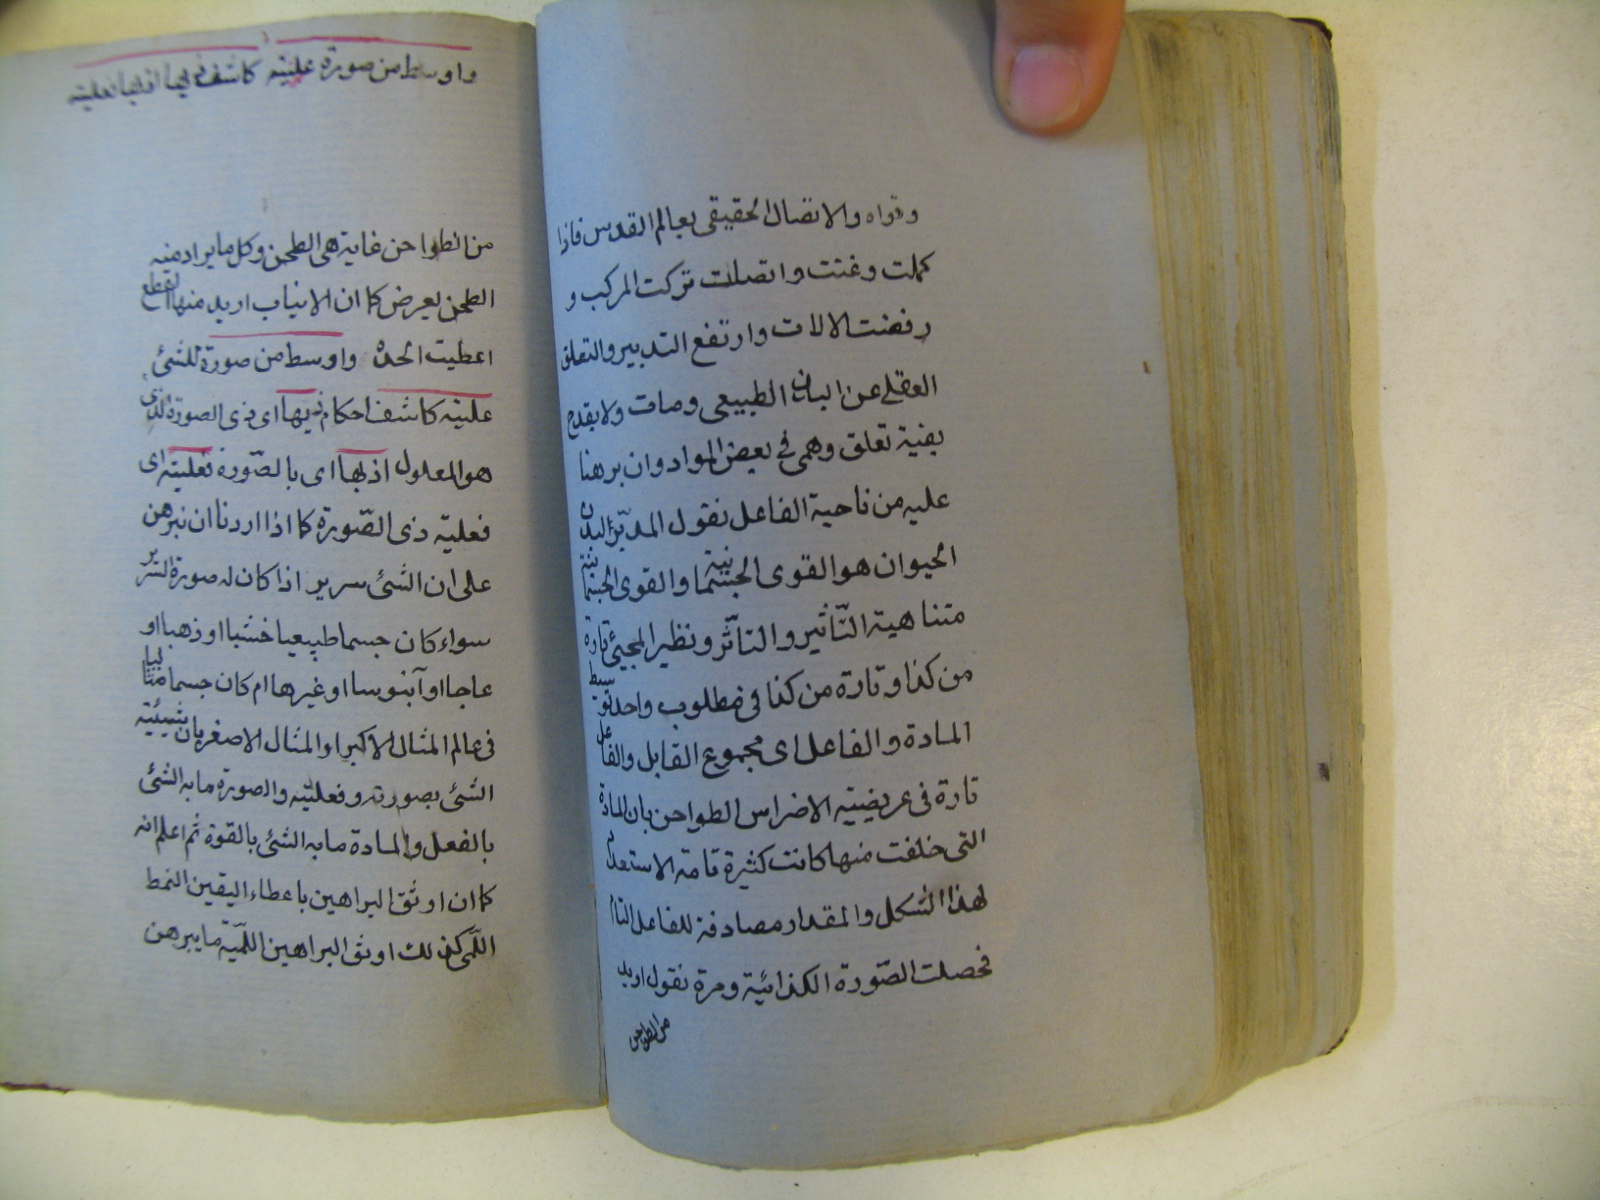 وقواه والاتصال الحقيقى بعالم القدس فاذا
كملت وغنت واتصلت تركت المركب و
رفضت الالات وارتفع التدبير والتعلق
العقلى عن البدن الطبيعى ومات ولا يقدح
بقية تعلق وهمى فى بعض المواد وان برهنا
عليه من ناحية الفاعل نقول المدبر لبدن
الحيوان هو القوى الجسمانية والقوى الجسمانية
متناهية التّاثير والتاثّر ونظير المجيئ تارة
من كذا وتارة من كذا فى مطلوب واحد توسيط
المادة والفاعل اى مجموع القابل والفاعل
تارة فى عريضية الاضراس الطواحن بان المادة
التى خلقت منها كانت كثيرة تامة الاستعداد
لهذا الشكل والمقدار مصادفة للفاعل التام
فحصلت الصّورة الكذائية ومرة نقول اريد
من الطواحن
واوسط من صورة علّيته كاشف ذيها اذ بها فعليته
من الطواحن غاية هى الطحن وكل ما يراد منه
الطحن يعرض كما ان الانياب اريد منها القطع
اعطيت الحدة واوسط من صورة للشئ
علّيته كاشف احكام ذيها اى ذى الصورة الذى
هو المعلول اذ بها اى بالصّورة فعليته اى
فعليته ذى الصّورة كما اذا اردنا ان نبرهن
على ان الشئ سرير اذا كان له صورة السرير
سواء كان جسما طبيعيا خشبا او ذهبا او
عاجا او آبنوسا او غيرها ام كان جسما مثاليا
فى عالم المثال الاكبر او المثال الاصغر بان شيئية
الشئ بصورته وفعليّته والصورة ما به الشئ
بالفعل والمادة ما به الشئ بالقوة ثم اعلم انه
كما ان اوثق البراهين باعطاء اليقين النمط
اللّمى كذلك اوثق البراهين اللمّية ما يبرهن